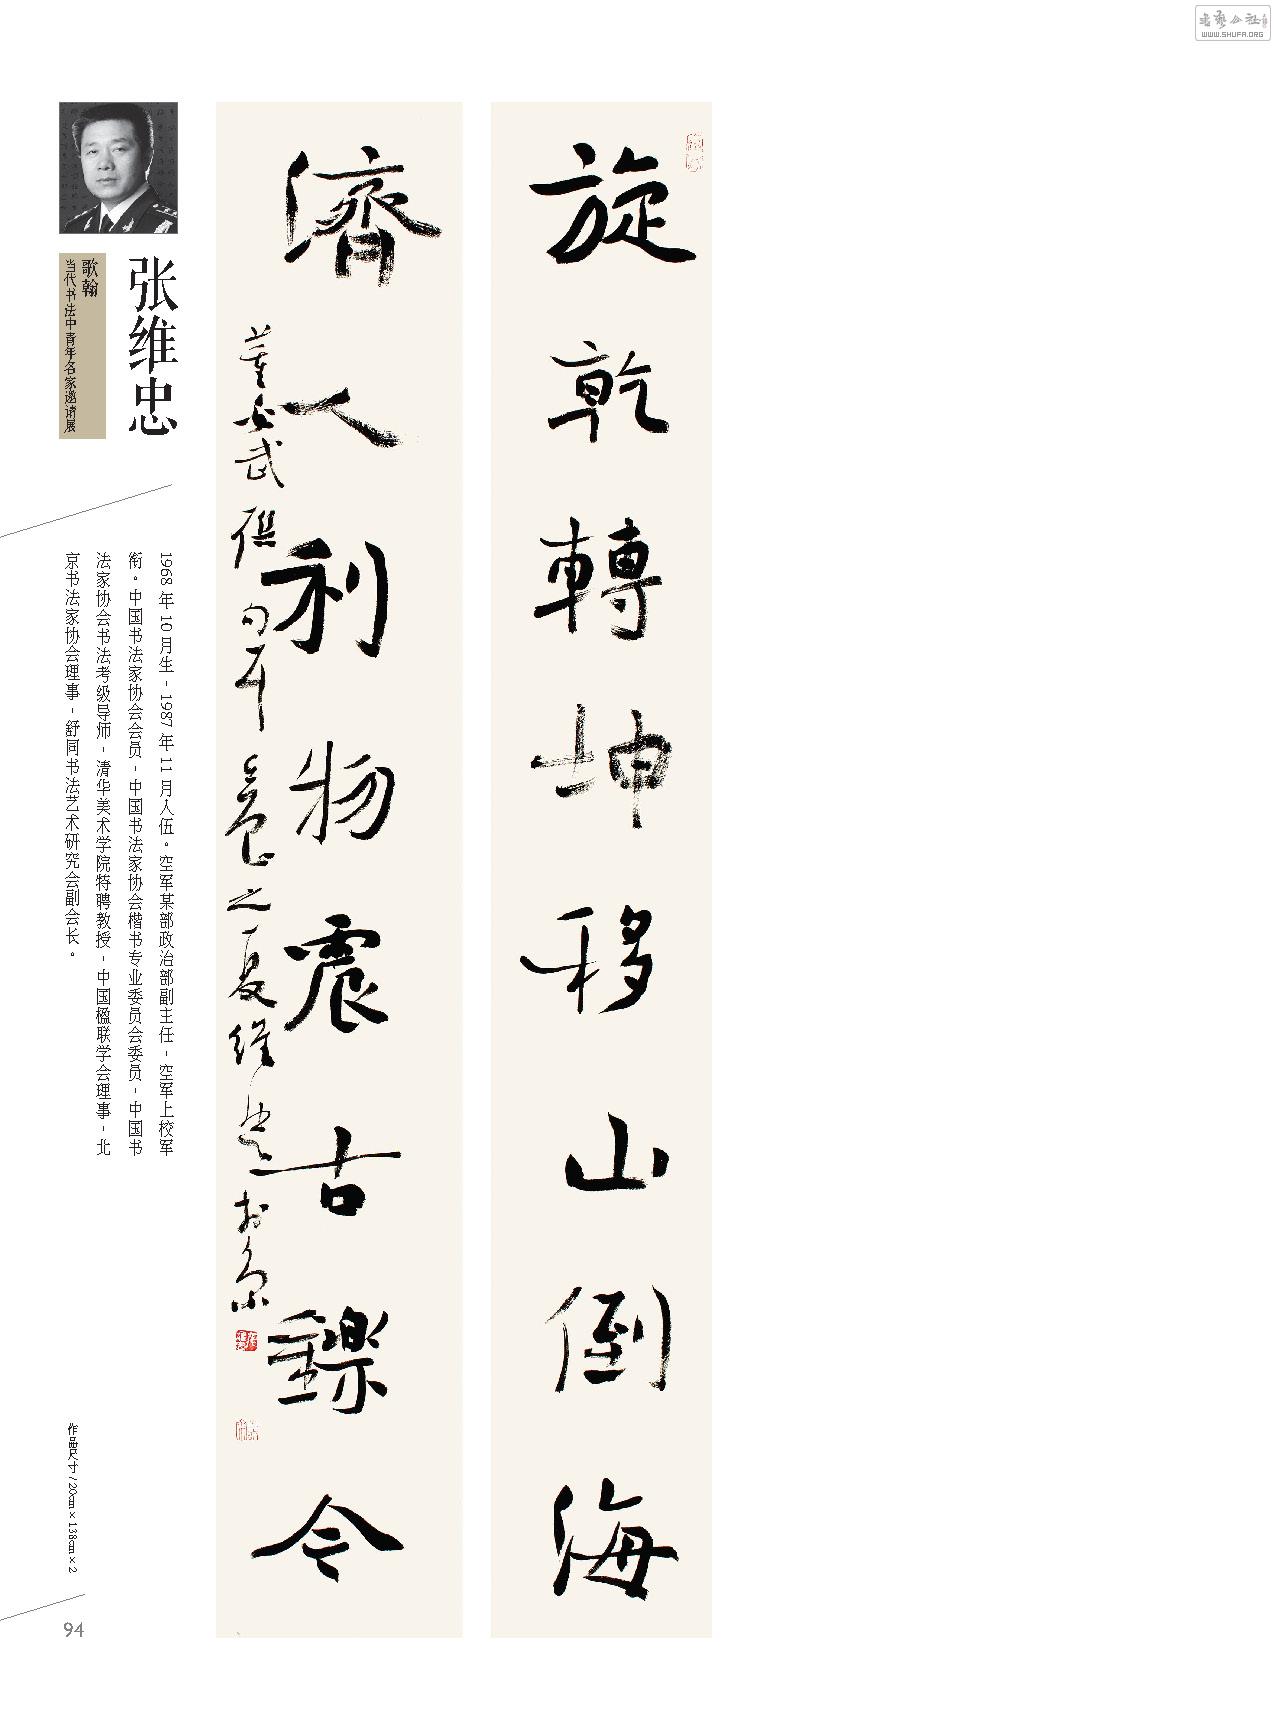 書藝公社
WWW.SHUFA.ORG
旋乾轉坤移山倒海
濟人利物震古鑠今
董必武撰句
之夏維忠於京
张维忠
歌翰
当代书法中青年名家邀请展
1968年10月生-1987年11月入伍。空军某部政治部副主任-空军上校军
衔。中国书法家协会会员-中国书法家协会楷书专业委员会委员-中国书
法家协会书法考级导师-清华美术学院特聘教授-中国楹联学会理事-北
京书法家协会理事-舒同书法艺术研究会副会长。
作品尺寸/20cm×138cm×2
94